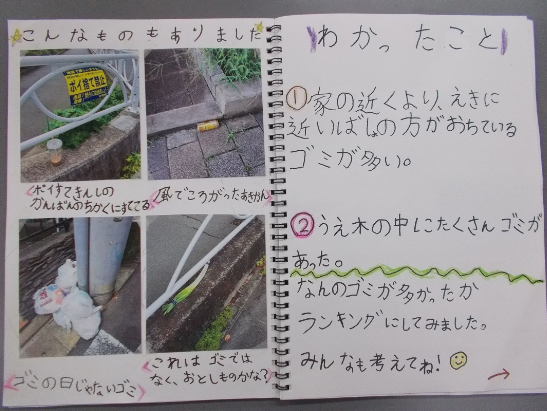 こんなものもありました
ポイ捨て禁止
ポイすてきんしの
かんばんのちかくにすててる
風でころがったあきかん
ゴミの日じゃないゴミ
これは ゴミでは
なく、おとしものかな?
わかったこと
①家の近くより、えきに
近いばしょの方がおちている
ゴミが多い。
②うえ木の中にたくさんゴミが
あった。
なんのゴミが多かったか
ランキングにしてみました。
みんなも考えてね!